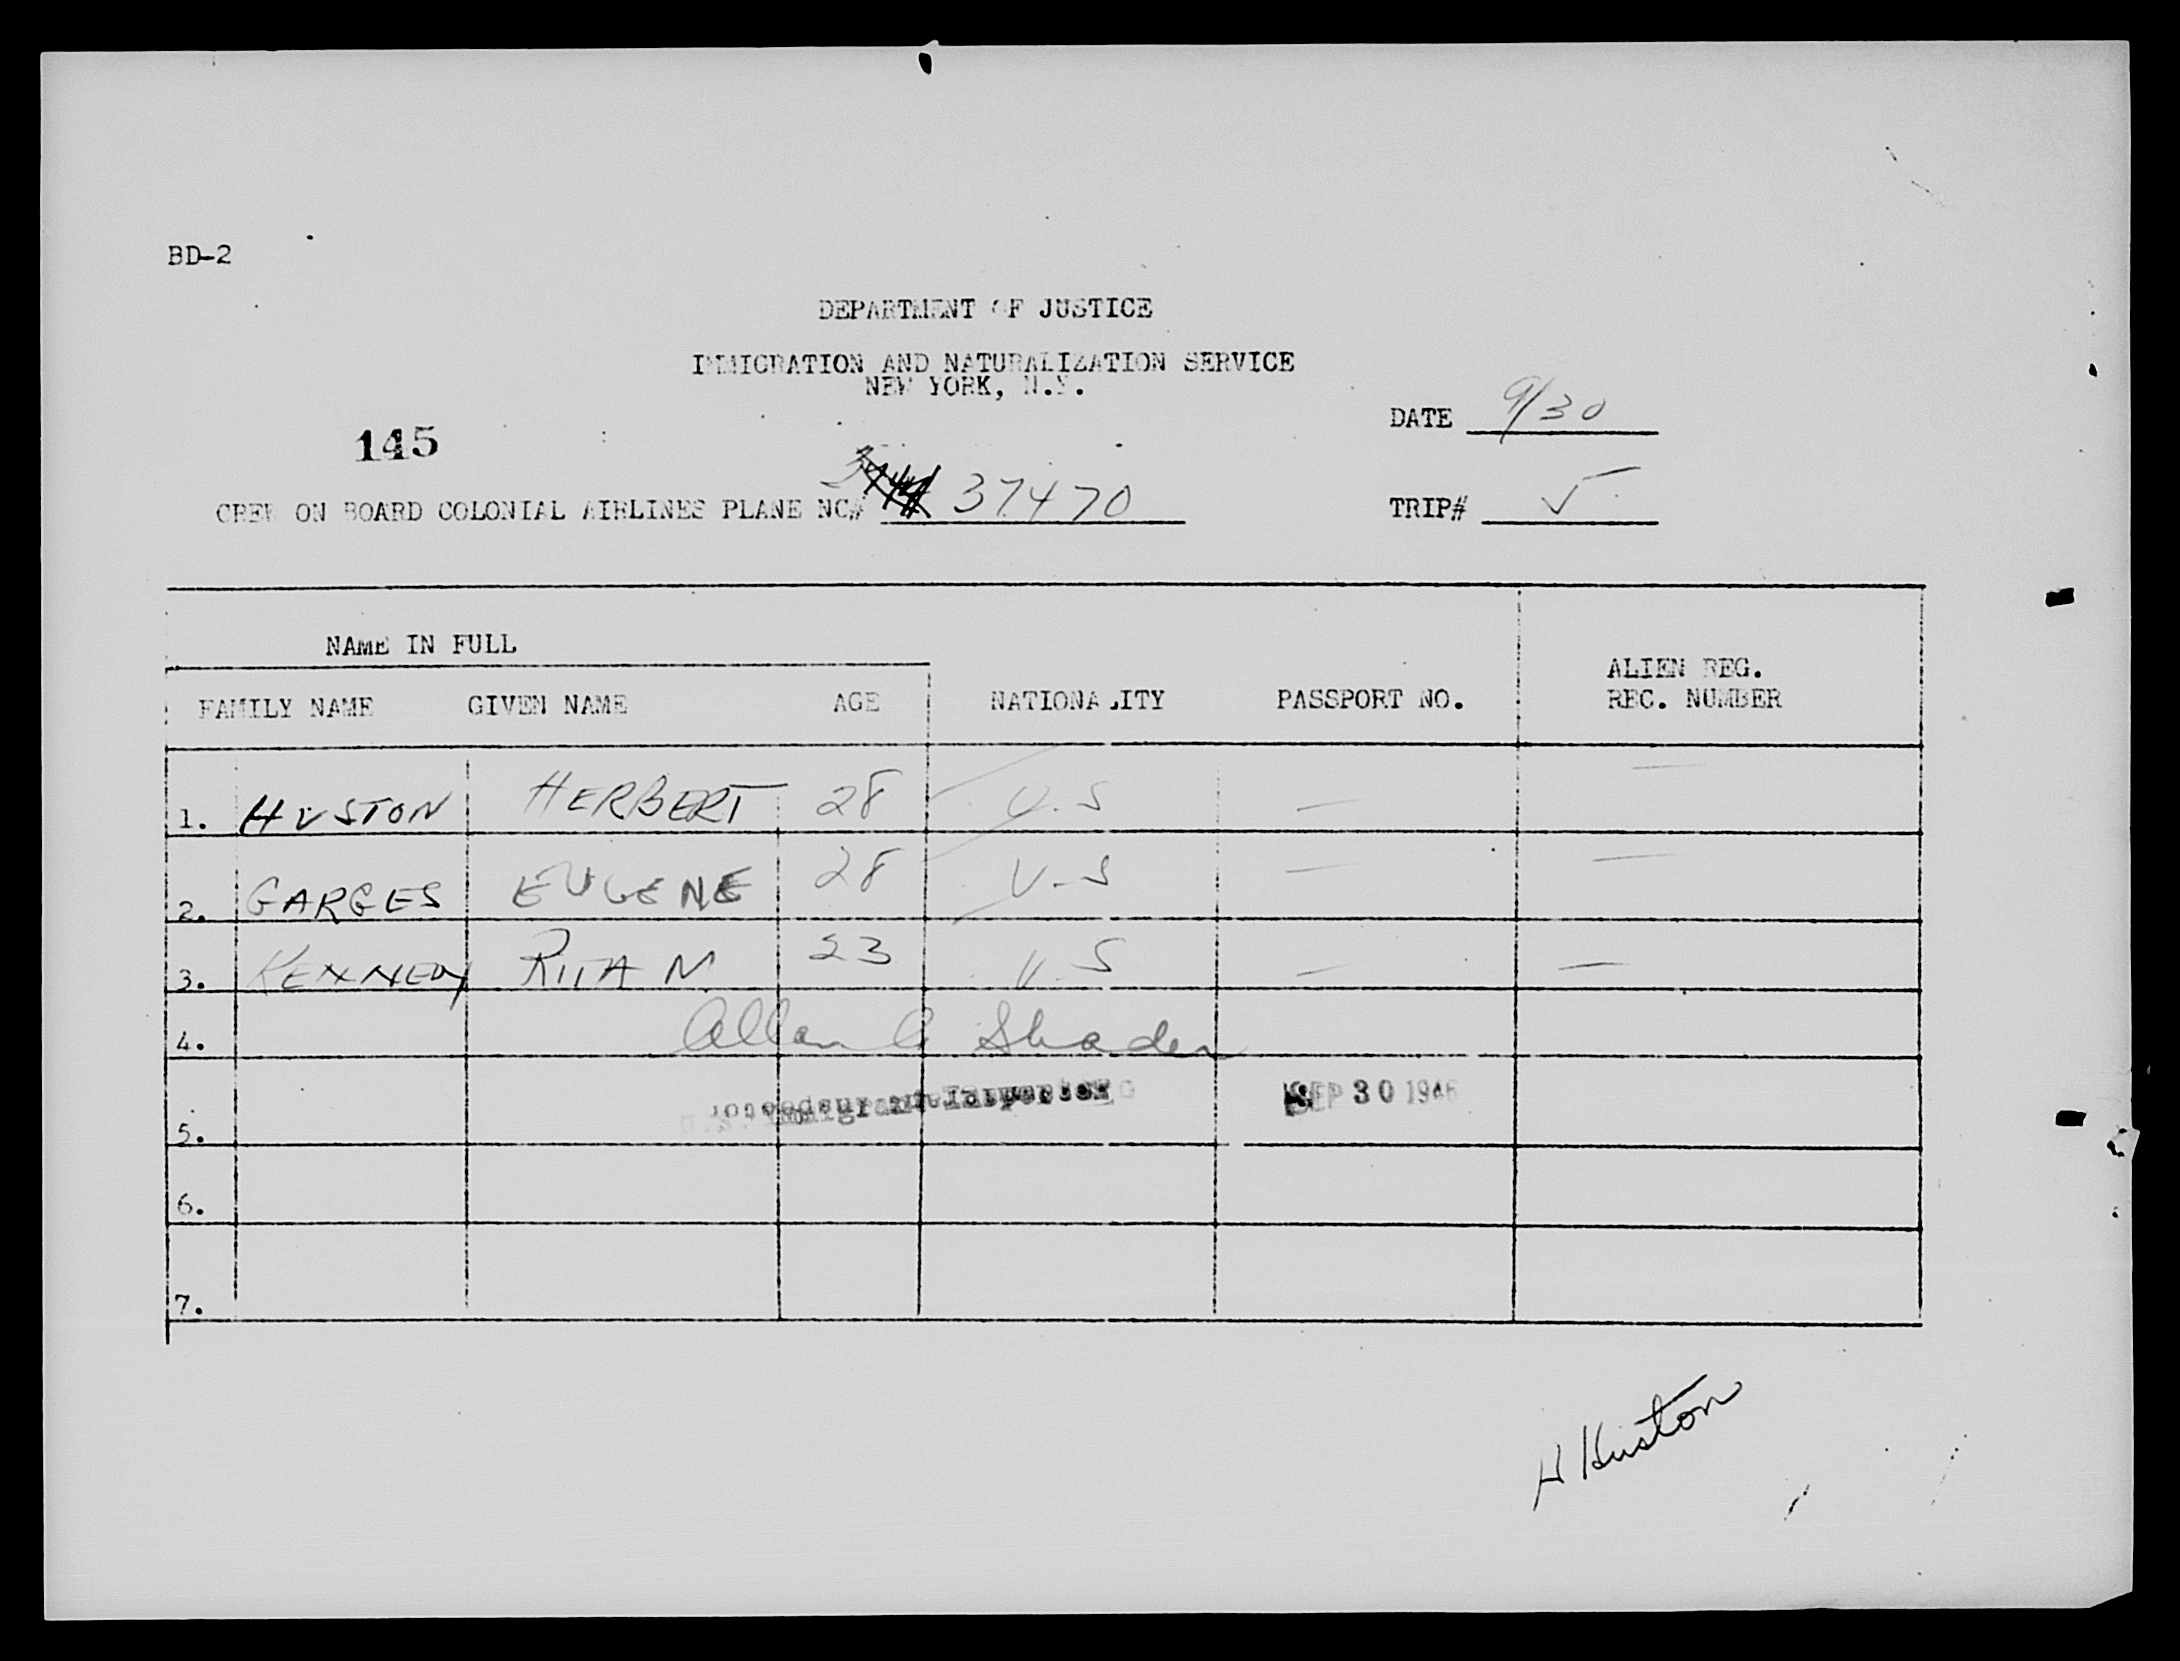 BD-2
DEPARTMENT OF JUSTICE
IMMIGRATION AND NATURALIZATION SERVICE
NEW YORK, N.Y.
DATE 9/30
145
CREW ON BOARD COLONIAL AIRLINES PLANE NC# 37470
TRIP#
NAME IN FULL
ALIEN REG.
FAMILY NAME GIVEN NAME AGE NATIONALITY PASSPORT NO. REC. NUMBER
1. HUSTON HERBERT 28 U.S — —
2. GARGES EUGENE 28 U-S — —
3. KENNEDY RITA M 23 U.S — —
4. Allan Shader
SEP 30 1946
5.
6.
7.
H Huston